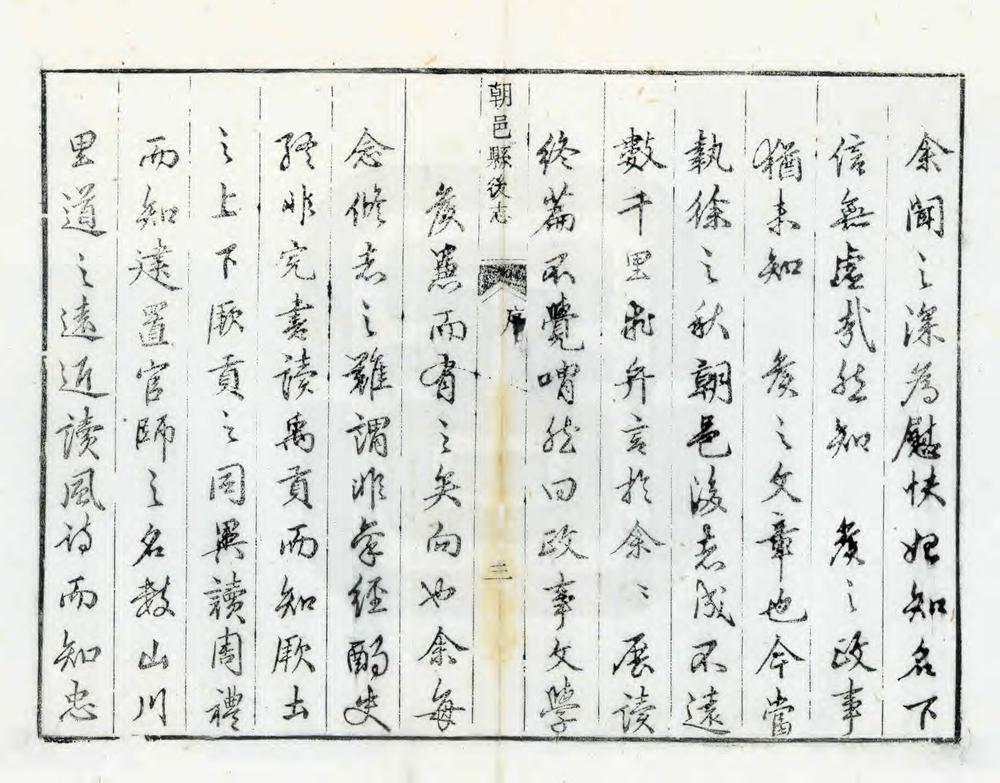 余聞之深為慰快始知名下
信無虛哉然知侯之政事
猶未知侯之文章也今當
執徐之秋朝邑後志成不遠
數千里乖弁言於余〻展讀
終篇不覺喟然曰政事文學
朝邑縣後志
序
三
侯兼而有之矣向也余每
念修志之難謂非穿經酌史
終非完書讀禹貢而知厥土
之上下厥貢之同異讀周禮
而知建置官師之名數山川
里道之遠近讀風詩而知忠